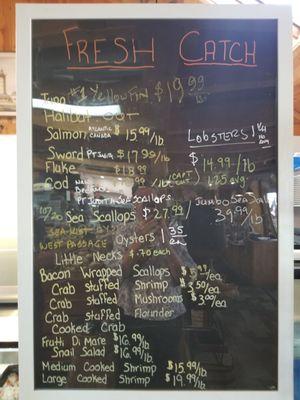 FRESH CATCH
Tuna #1 Yellow Fin $19.99
Halibut OUT
Salmon ATLANTIC CANADA $15.99/lb
LOBSTERS!
Sword PT JUDITH $17.99/lb
$14.99/lb
Fluke $18.99
1.25 avg.
Cod
Jumbo Sea Scallops
39.99/lb
10/20 Sea Scallops $27.99/
WEST PASSAGE Oysters 1.35 ea
Little Necks $.70 each
Bacon Wrapped Scallops
Crab Stuffed Shrimp
Crab Stuffed Mushrooms $3.00/ea
Crab Stuffed Flounder
Cooked Crab
Frutti Di Mare $16.99/lb
Snail Salad $16.99/lb
Medium Cooked Shrimp $15.99/lb
Large Cooked Shrimp $19.99/lb